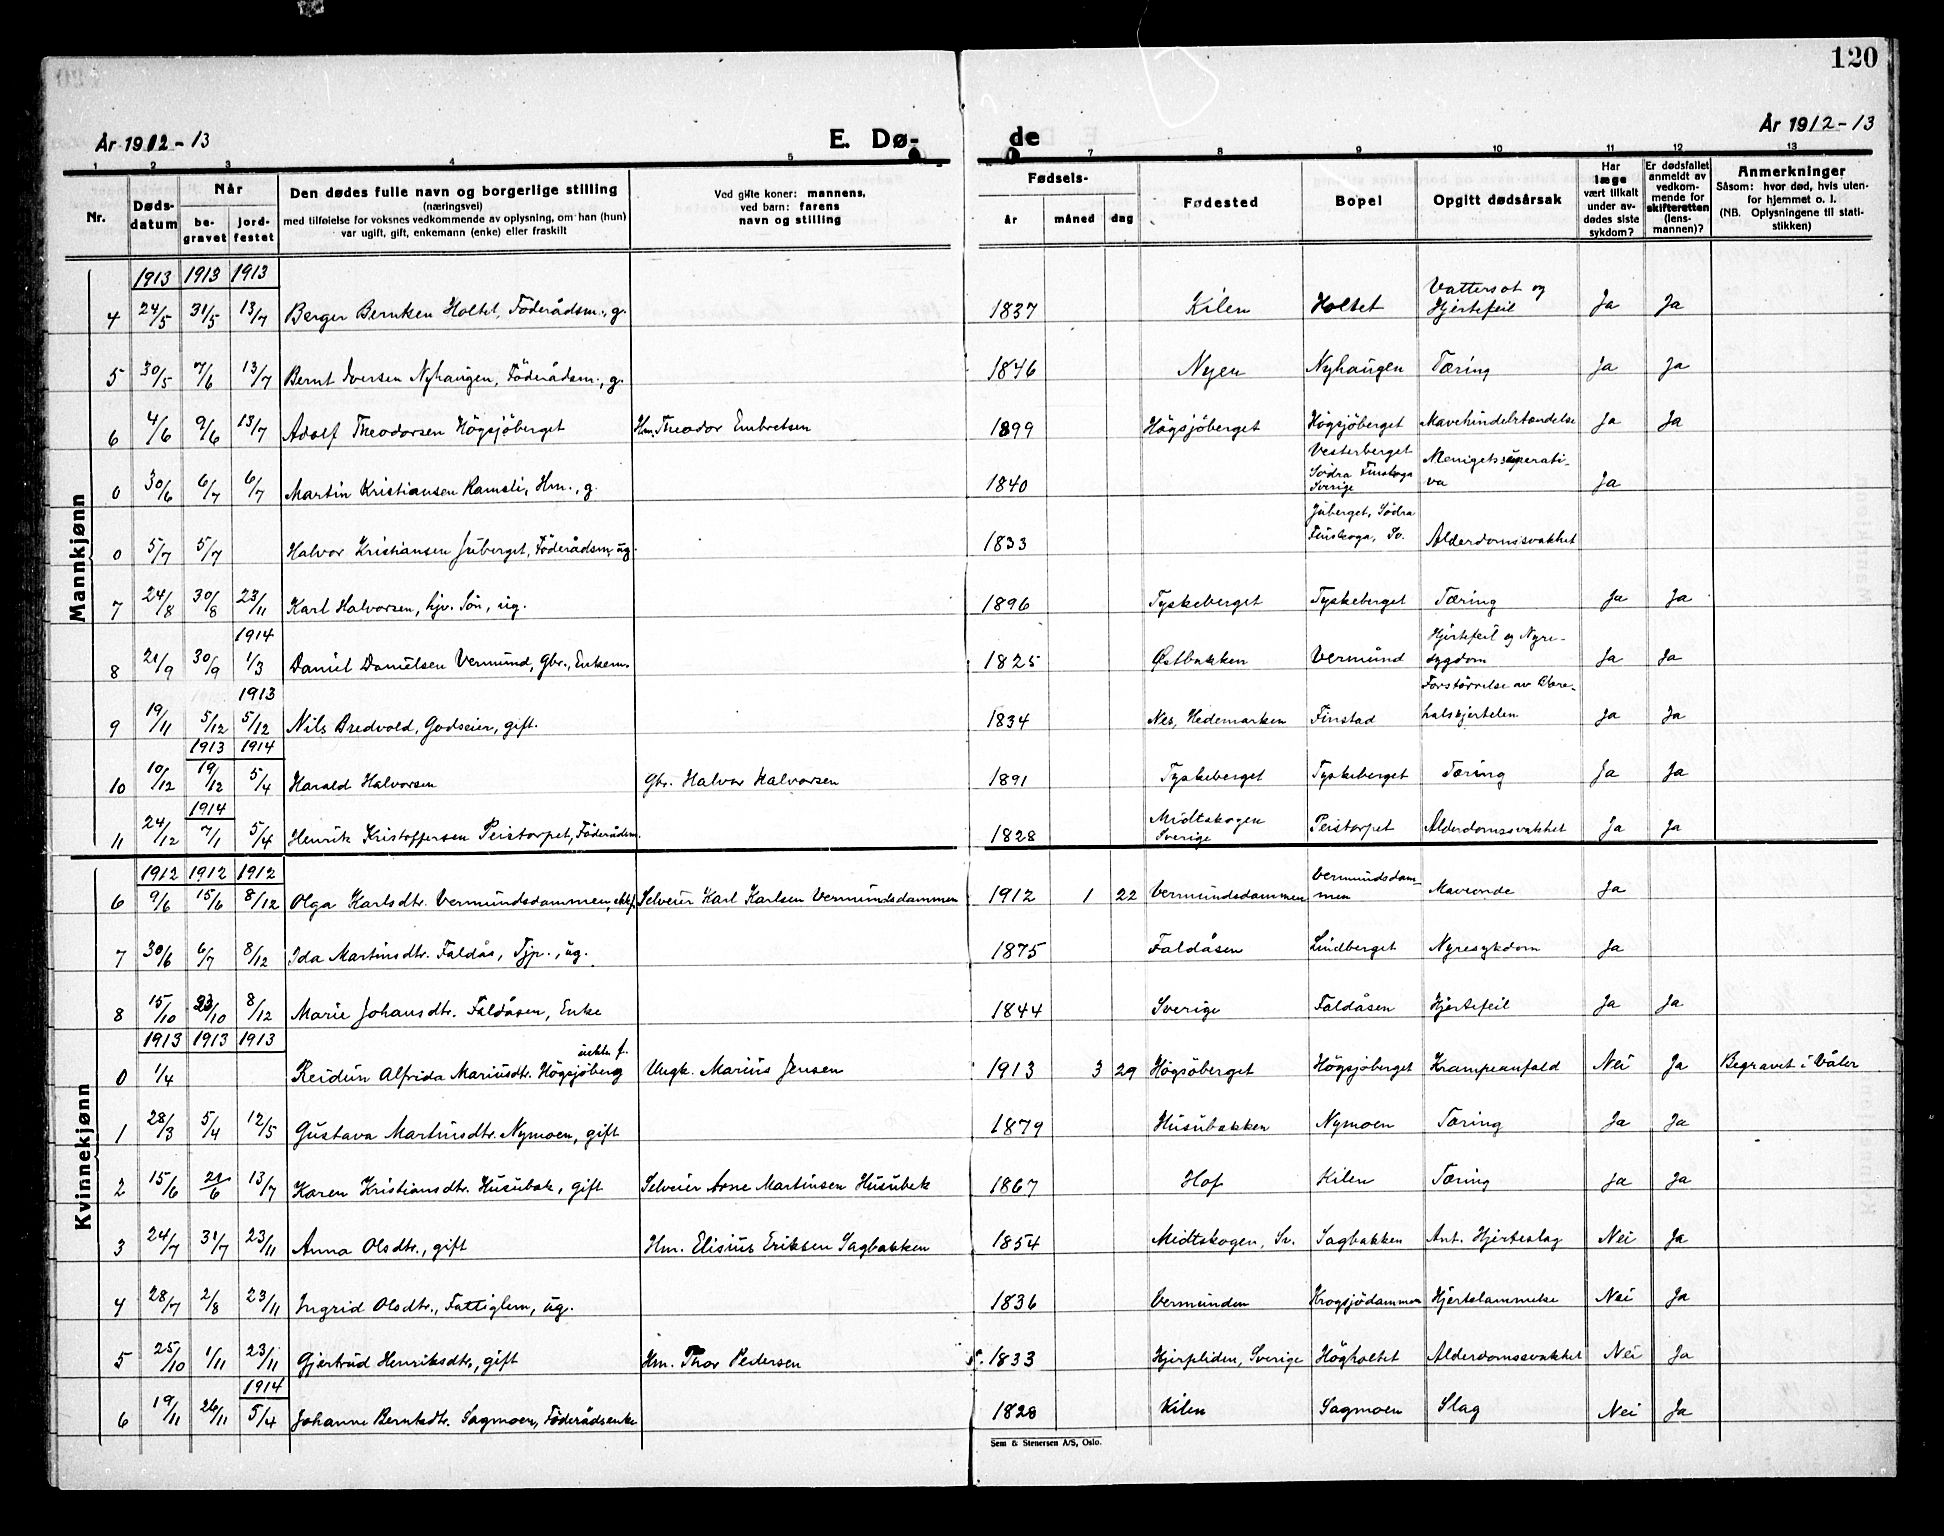 120
År 1912-13 E. Dø- de År 1912-13
1 2 3 4 5 7 8 9 10 11 12 13
Nr. Døds-datum Når be-gravet jord-festet Den dødes fulle navn og borgerlige stilling (næringsvei) med tilføielse for voksnes vedkommende av oplysning, om han (hun) var ugift, gift, enkemann (enke) eller fraskilt Ved gifte koner: mannens, ved barn: farens navn og stilling Fødsels- år måned dag Fødested Bopel Opgitt dødsårsak Har læge vært tilkalt under av-dødes siste sykdom? Er dødsfallet anmeldt av vedkom-mende for skifteretten (lens-mannen)? Anmerkninger Såsom: hvor død, hvis uten-for hjemmet o. l. (NB. Oplysningene til stati-stikken)
Mannkjønn
1913 1913 1913
4 24/5 31/5 13/7 Berger Berntsen Holtet, Föderådsm., g. 1837 Kilen Holtet Vattersot og Hjertefeil Ja Ja
5 30/5 7/6 13/7 Bernt Iversen Nyhaugen, Föderådsm., g. 1846 Nyen Nyhaugen Tæring Ja Ja
6 4/6 9/6 13/7 Adolf Theodorsen Högsjöberget Hm. Theodor Embretsen 1899 Högsjöberget Högsjöberget Mavehindebetændelse Ja Ja
0 30/6 6/7 6/7 Martin Kristiansen Ramsli, Hm., g. 1840 Vesterberget Södra Finskoga Sverige Ja
0 5/7 5/7 Halvor Kristiansen Juberget, Föderådsm. ug. 1833 Juberget, Södra Finskoga, Sv. Alderdomssvakhet
7 24/8 30/8 23/11 Karl Halvorsen, hjv. Sön, ug. 1896 Tyskeberget Tyskeberget Tæring Ja Ja
1914
8 21/9 30/9 1/3 Daniel Danielsen Vermund, Gbr., Enkem. 1825 Østbakken Vermund Hjertefeil og Nyre-sygdom Ja Ja
1913
9 19/11 5/12 5/12 Nils Bredvold, Godseier, gift. 1834 Nes, Hedemarken Finstad Forstørrelse av Blære-halskjertelen Ja Ja
1913 1914
10 10/12 19/12 5/4 Harald Halvorsen Gbr. Halvor Halvorsen 1891 Tyskeberget Tyskeberget Tæring Ja Ja
1914
11 24/12 7/1 5/4 Henrik Kristoffersen Peistorpet, Föderådsm. 1828 Midtskogen Sverige Peistorpet Alderdomssvakhet Ja Ja
Kvinnekjønn
1912 1912 1912
6 9/6 15/6 8/12 Olga Karlsdtr. Vermundsdammen, ektef. Selveier Karl Karlsen Vermundsdammen 1912 1 22 Vermundsdammen Vermundsdam-men Maveonde Ja
7 30/6 6/7 8/12 Ida Martinsdtr. Faldås, Tjp., ug. 1875 Faldåsen Lindberget Nyresykdom Ja
8 15/10 23/10 8/12 Marie Johansdtr. Faldåsen, Enke 1844 Sverige Faldåsen Hjertefeil Ja Ja
1913 1913 1913
0 1/4 Reidun Alfrida Mariusdtr. Högsjöberg uekte f. Ungk. Marius Jensen 1913 3 29 Högsöberget Högsjöberget Krampeanfald Nei Ja Begravet i Våler
1 28/3 5/4 12/5 Gustava Martinsdtr. Nymoen, gift 1879 Husubakken Nymoen Tæring Ja Ja
2 15/6 21/6 13/7 Karen Kristiansdtr. Husubak, gift Selveier Arne Martinsen Husubek 1867 Hof Kilen Tæring Ja Ja
3 24/7 31/7 23/11 Anna Olsdtr., gift Hm. Elisius Eriksen Sagbakken 1854 Midtskogen, Sv. Sagbakken Ant. Hjerteslag Nei Ja
4 28/7 2/8 23/11 Ingrid Olsdtr., Fattiglem, ug. 1836 Vermunden Krogsjödammen Hjertelammelse Nei Ja
5 25/10 1/11 23/11 Gjertrud Henriksdtr., gift Hm. Thor Pedersen 1833 Hjerpliden, Sverige Högholtet Alderdomssvakhet Nei Ja
1914
6 19/11 26/11 5/4 Johanne Berntsdtr. Sagmoen, Föderådsenke 1828 Kilen Sagmoen Slag Nei Ja
Sem & Stenersen A/S, Oslo.